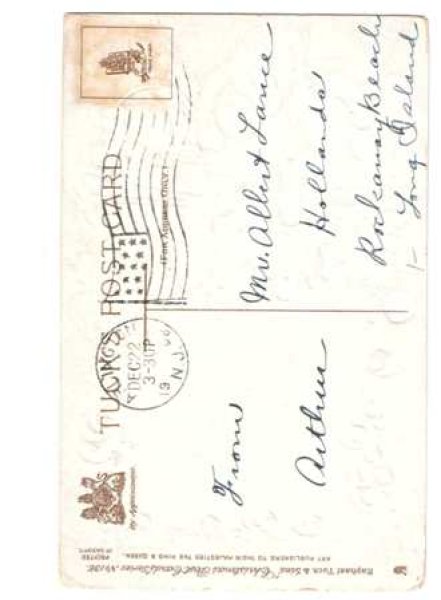 TUCK'S POST CARD
(For Address Only.)
DEC 22
3-30P
N.J.
By Appointment.
From
Arthur
Mr. Albert Lance
Hollands
Rockaway Beach
Long Island
RAPHAEL TUCK & SONS'
ART PUBLISHERS TO THEIR MAJESTIES THE KING & QUEEN.
PRINTED
IN SAXONY